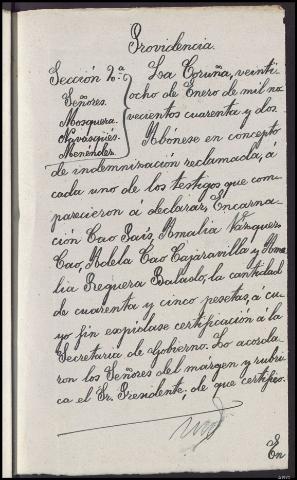 Providencia.
Sección 2ª
Señores.
Mosquera.
Navasqüés.
Menéndez.
La Coruña, veinti
ocho de Enero de mil no
vecientos cuarenta y dos
Abónese en concepto
de indemnización reclamada, á
cada uno de los testigos que com
parecieron á declarar, Encarna-
ción Cao Pais, Amalia Vázquez
Cao, Adela Cao Cajaravilla y Ama
lia Reguera Balado, la cantidad
de cuarenta y cinco pesetas, á cu-
yo fin expidase certificación á la
Secretaria de Gobierno. Lo acorda-
ron los Señores del márgen y rubri-
ca el Sr. Presidente, de que certifico.
En